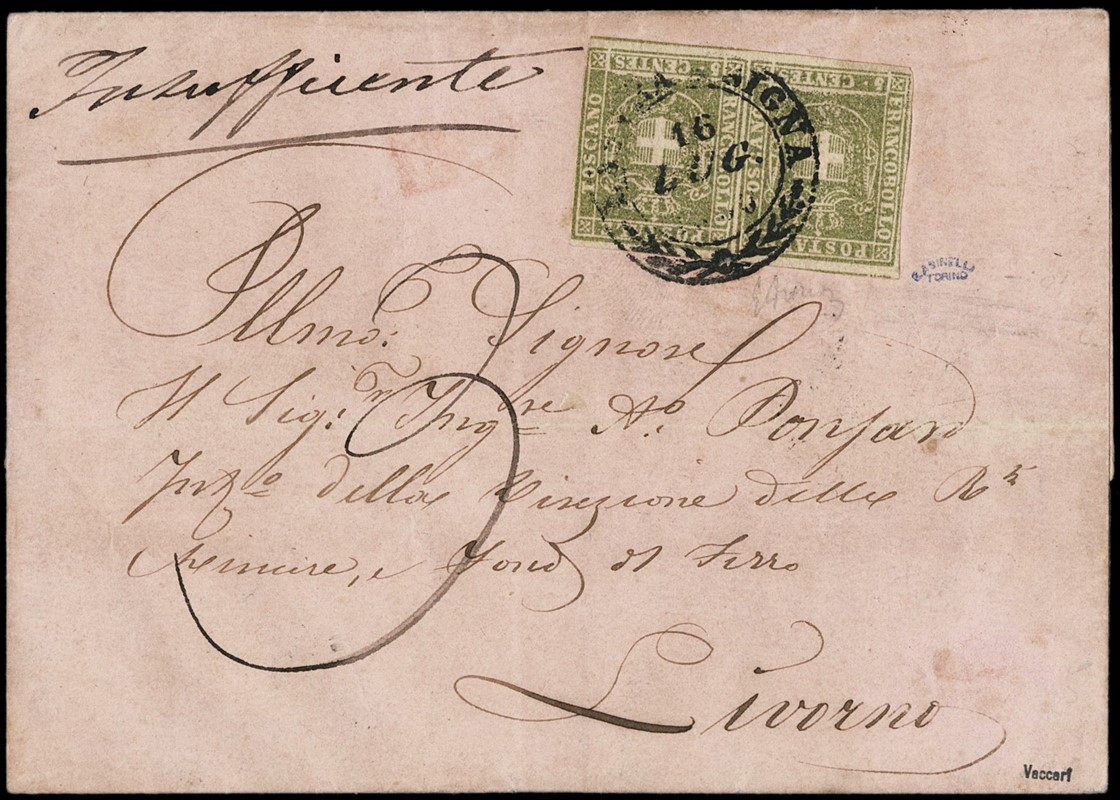 Insufficiente
CENTES 5
5 CENTES
TOSCANO
FRANCOBOLLO
TOSCANO
FRANCOBOLLO
POSTALE
POSTALE
SIGNA
16
LUG.
3
G. ASINELLI
TORINO
Illmo: Signore
Il Sig:r Ingre Ao. Ponsard
della Direzione delle R.
Miniere, e Fond di Ferro
Livorno
Vaccari